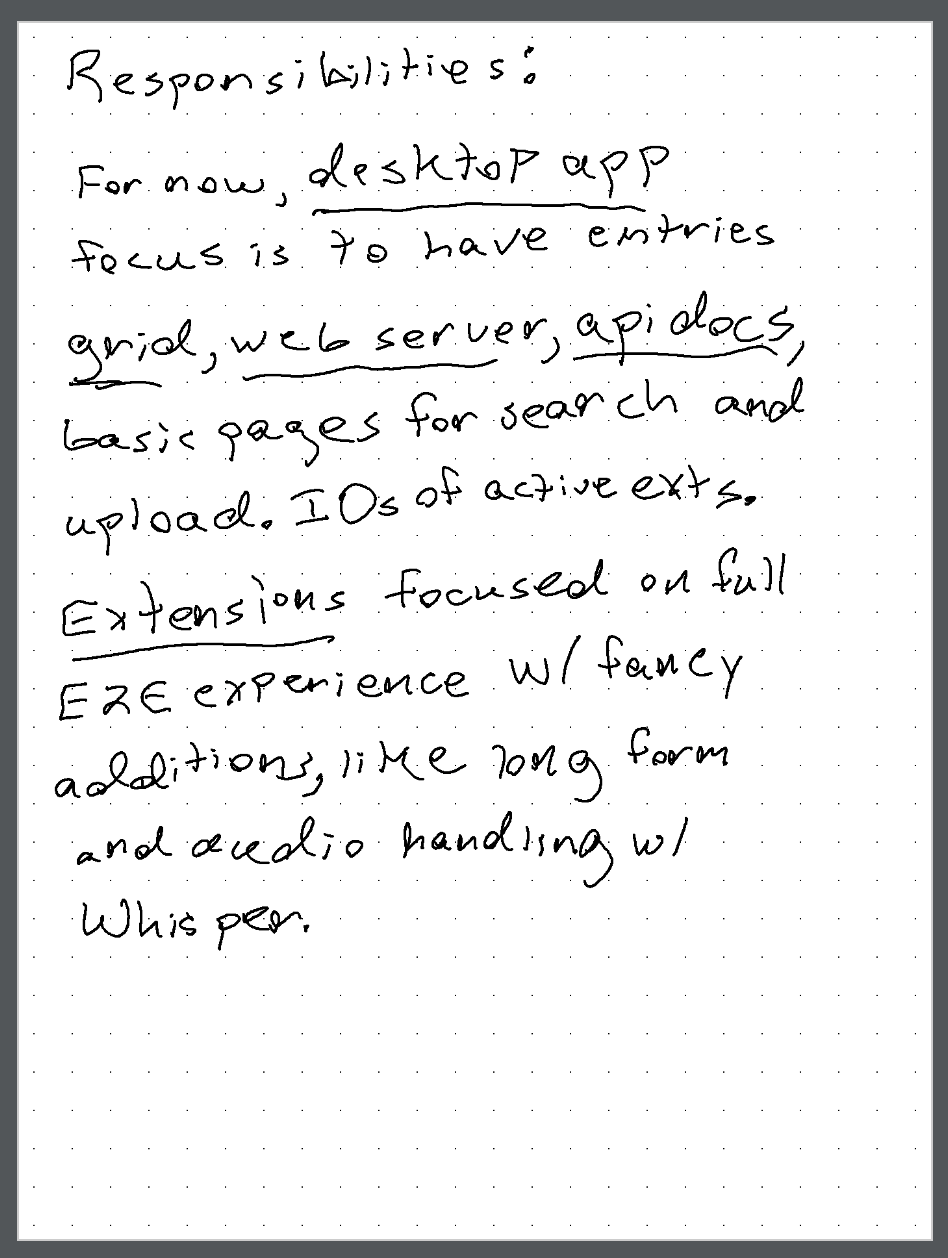 Responsibilities:
For now, desktop app
focus is to have entries
grid, web server, api docs,
basic pages for search and
upload. IDs of active exts.
Extensions focused on full
E2E experience w/ fancy
additions, like long form
and audio handling w/
Whisper.